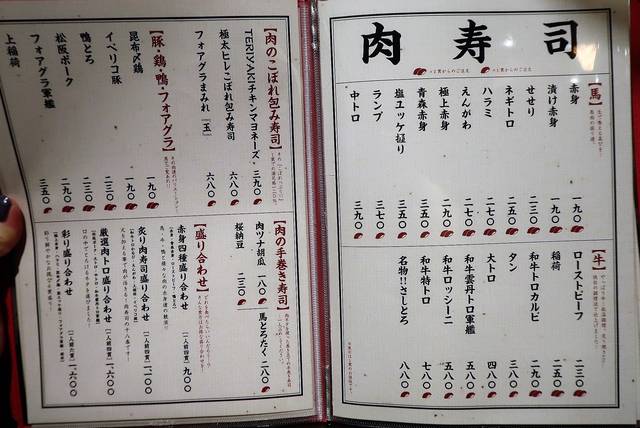 肉寿司
【馬】
赤身 一九〇
漬け赤身 一九〇
せせり 二三〇
ネギトロ 二五〇
ハラミ 二七〇
えんがわ 二七〇
極上赤身 二九〇
青森赤身 三五〇
塩ユッケ握り 三五〇
ランプ 三七〇
中トロ 三九〇
【牛】
ローストビーフ 二三〇
稲荷 二五〇
和牛トロカルビ 二九〇
タン 三八〇
大トロ 四八〇
和牛雲丹トロ軍艦 五八〇
和牛ロッシーニ 五八〇
和牛特トロ 七八〇
名物!!さしとろ 八八〇
【肉のこぼれ包み寿司】
TERIYAKIチキンマヨネーズ 三九〇
極太ヒレこぼれ包み寿司 六八〇
フォアグラまみれ「玉」 六八〇
【豚・鶏・鴨・フォアグラ】
昆布〆鶏 一九〇
イベリコ豚 一九〇
鴨とろ 二三〇
松阪ポーク 二三〇
フォアグラ軍艦 二九〇
上稲荷 三五〇
【肉の手巻き寿司】
肉ツナ胡瓜 一八〇
馬とろたく 二八〇
桜納豆 二三〇
【盛り合わせ】
赤身四種盛り合わせ [二人前四貫] 九〇〇
炙り肉寿司盛り合わせ [二人前四貫] 一、二〇〇
厳選肉トロ盛り合わせ [二人前四貫] 一、六〇〇
彩り盛り合わせ 一、六〇〇